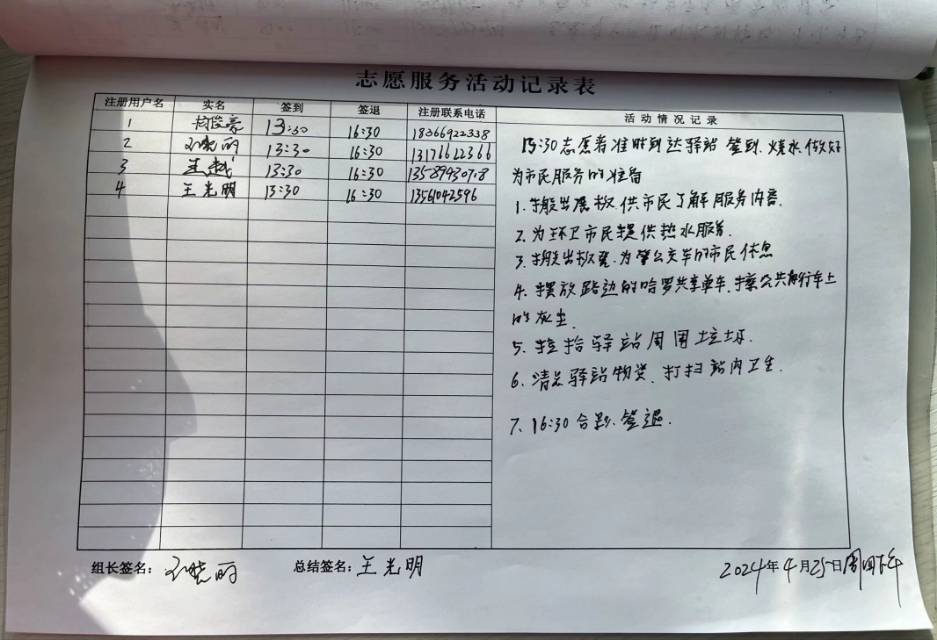 志愿服务活动记录表
注册用户名 实名 签到 签退 注册联系电话 活动情况记录
1 13:30 16:30 18366922338
2 13:30 16:30 13176622366
3 13:30 16:30
4 王光明 13:30 16:30 13561042596
13:30志愿者准时到达驿站 签到.烧水.做好
为市民服务的准备
1.搬出展板 供市民了解服务内容.
2.为环卫市民提供热水服务.
3.搬出板凳.为等公交车的市民休息
4.摆放路边的哈罗共享单车.擦公共自行车上
的灰尘.
5.捡拾驿站周围垃圾.
6.清点驿站物资.打扫站内卫生.
7.16:30合影.签退.
组长签名: 总结签名:王光明 2024年4月25日周四下午